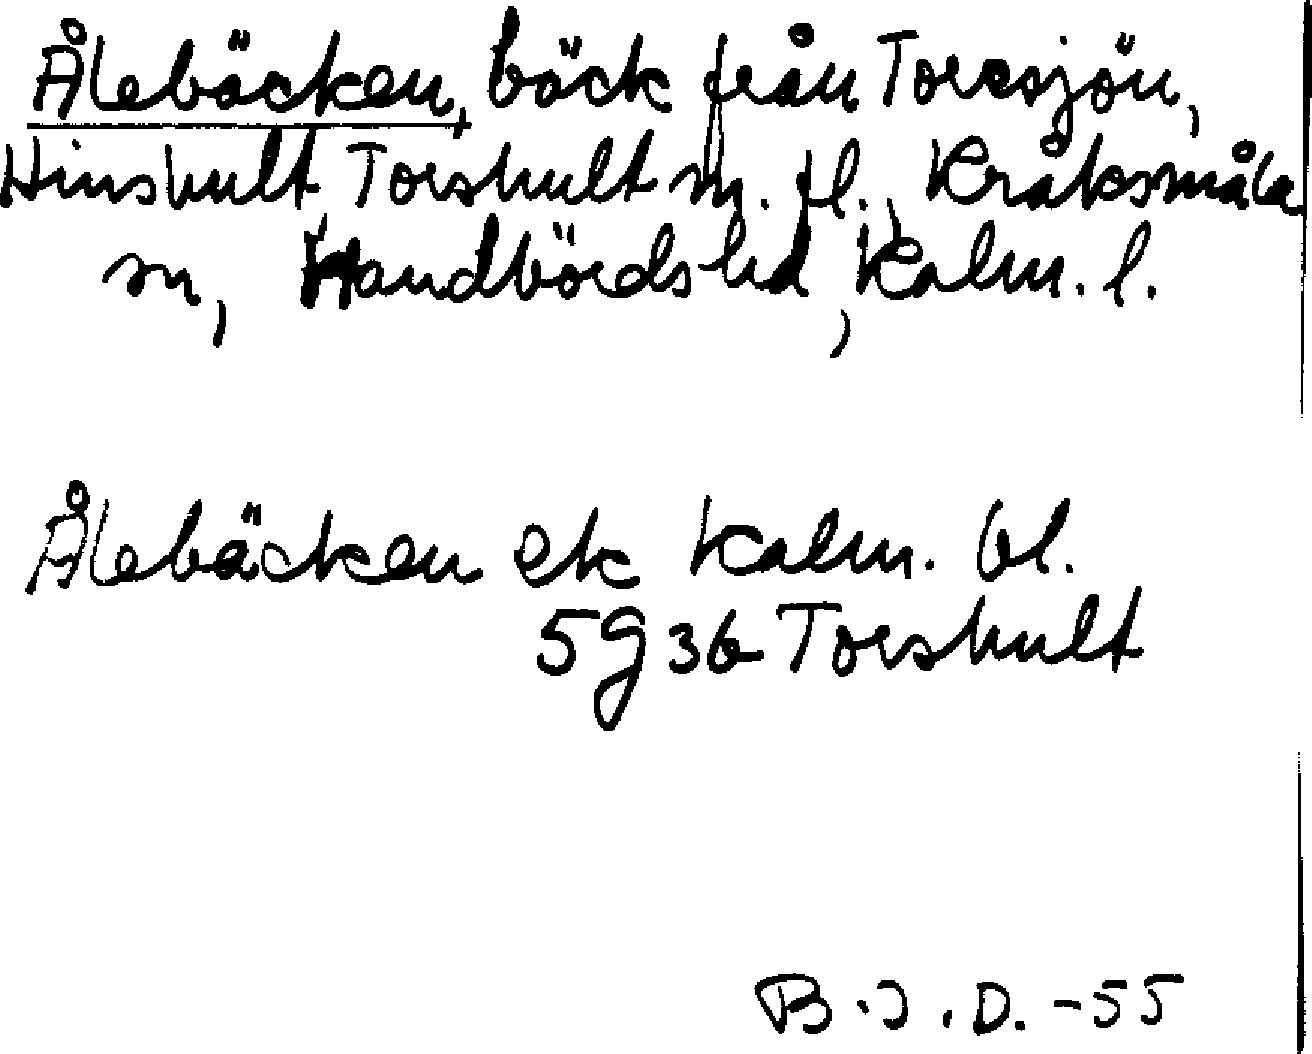 Ålebäcken, bäck från Torssjön,
Hinshult Torshult m. fl., Kråksmåla
sn, Handbörds hd, Kalm. l.
Ålebäcken ek Kalm. bl.
5g36 Torshult
B.J.D. -55